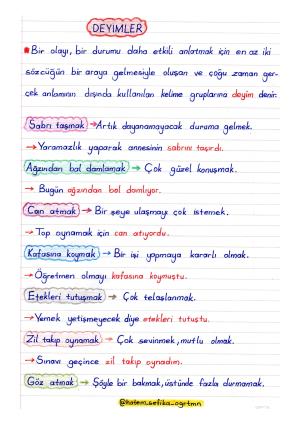 DEYİMLER
* Bir olayı, bir durumu daha etkili anlatmak için en az iki
sözcüğün bir araya gelmesiyle oluşan ve çoğu zaman ger-
çek anlamının dışında kullanılan kelime gruplarına deyim denir.
Sabrı taşmak → Artık dayanamayacak duruma gelmek.
→ Yaramazlık yaparak annesinin sabrını taşırdı.
Ağzından bal damlamak → Çok güzel konuşmak.
→ Bugün ağzından bal damlıyor.
Can atmak → Bir şeye ulaşmayı çok istemek.
→ Top oynamak için can atıyordu.
Kafasına koymak → Bir işi yapmaya kararlı olmak.
→ Öğretmen olmayı kafasına koymuştu.
Etekleri tutuşmak → Çok telaşlanmak.
→ Yemek yetişmeyecek diye etekleri tutuştu.
Zil takıp oynamak → Çok sevinmek, mutlu olmak.
→ Sınavı geçince zil takıp oynadım.
Göz atmak → Şöyle bir bakmak, üstünde fazla durmamak.
@hatem_sefika_ogrtmn